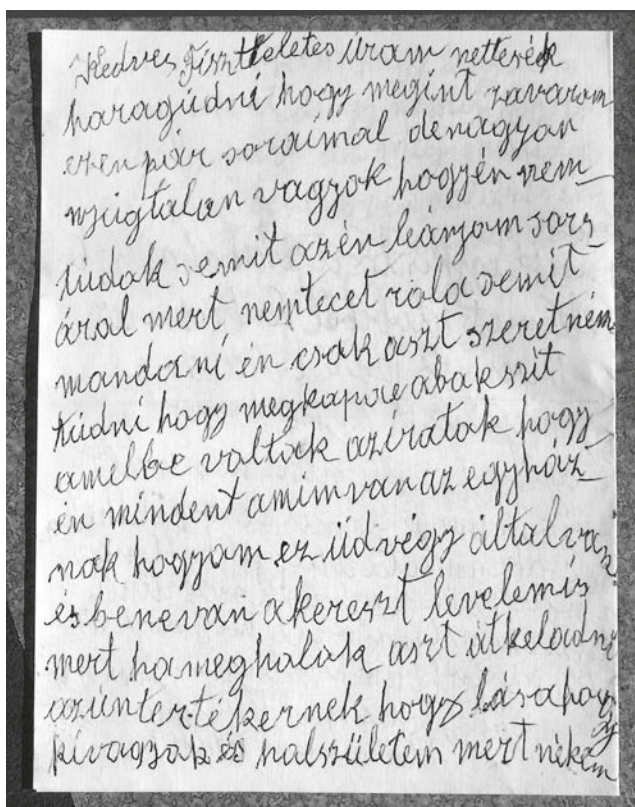 Kedves Tiszteletes Úram nettesék
haragúdni hogy megint zavarom
ezen pár soraímal denagyon
nyugtalan vagyok hogyén nem
túdok semit azén leányom sors
áral mert nemtecet rola semít
mandani én csak aszt szeretném
túdni hogy megkapta abakszít
amelbe voltak azíratok hogy
én mindent amim van az egyház
nak hogyam ez üdvégy által van
és benevan akereszt levelemis
mert hameghalok aszt átkeladni
azúntertékernek hogy lásahogy
kivagyok és halszületem mert nékem